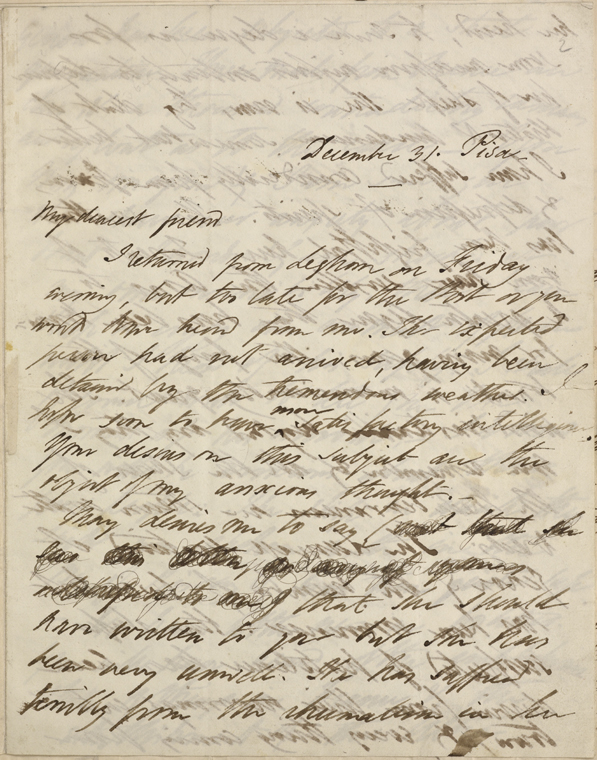 2
December 31. Pisa
My dearest friend
I returned from Leghorn on Friday
evening, but too late for the Post or you
would have heard from me. The expected
person had not arrived, having been
detained by the tremendous weather. I
hope soon to have more satisfactory intelligence.
Your desires on this subject are the
object of my anxious thought. —
Mary desires me to say (
that she should
have written to you but she has
been very unwell. She has suffered
terribly from the rheumatism in her